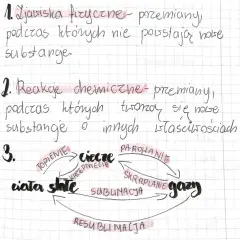 1. Zjawiska fizyczne - przemiany,
podczas których nie powstają nowe
substancje.
2. Reakcje chemiczne - przemiany,
podczas których tworzą się nowe
substancje o innych właściwościach
3.
TOPNIENIE
ciecze
PAROWANIE
KRZEPNIĘCIE
SKRAPLANIE
ciała stałe
SUBLIMACJA
gazy
RESUBLIMACJA